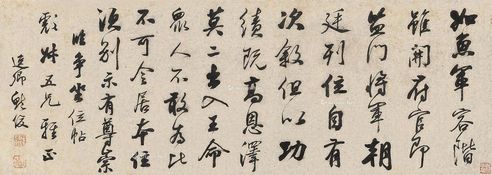 如魚軍容階
雖開府官即
監門將軍朝
廷列位自有
次敘但以功
績既高恩澤
莫二出入王命
眾人不敢為比
不可令居本位
須別示有尊崇
臨爭坐位帖
五兄雅正
逸卿鮑俊